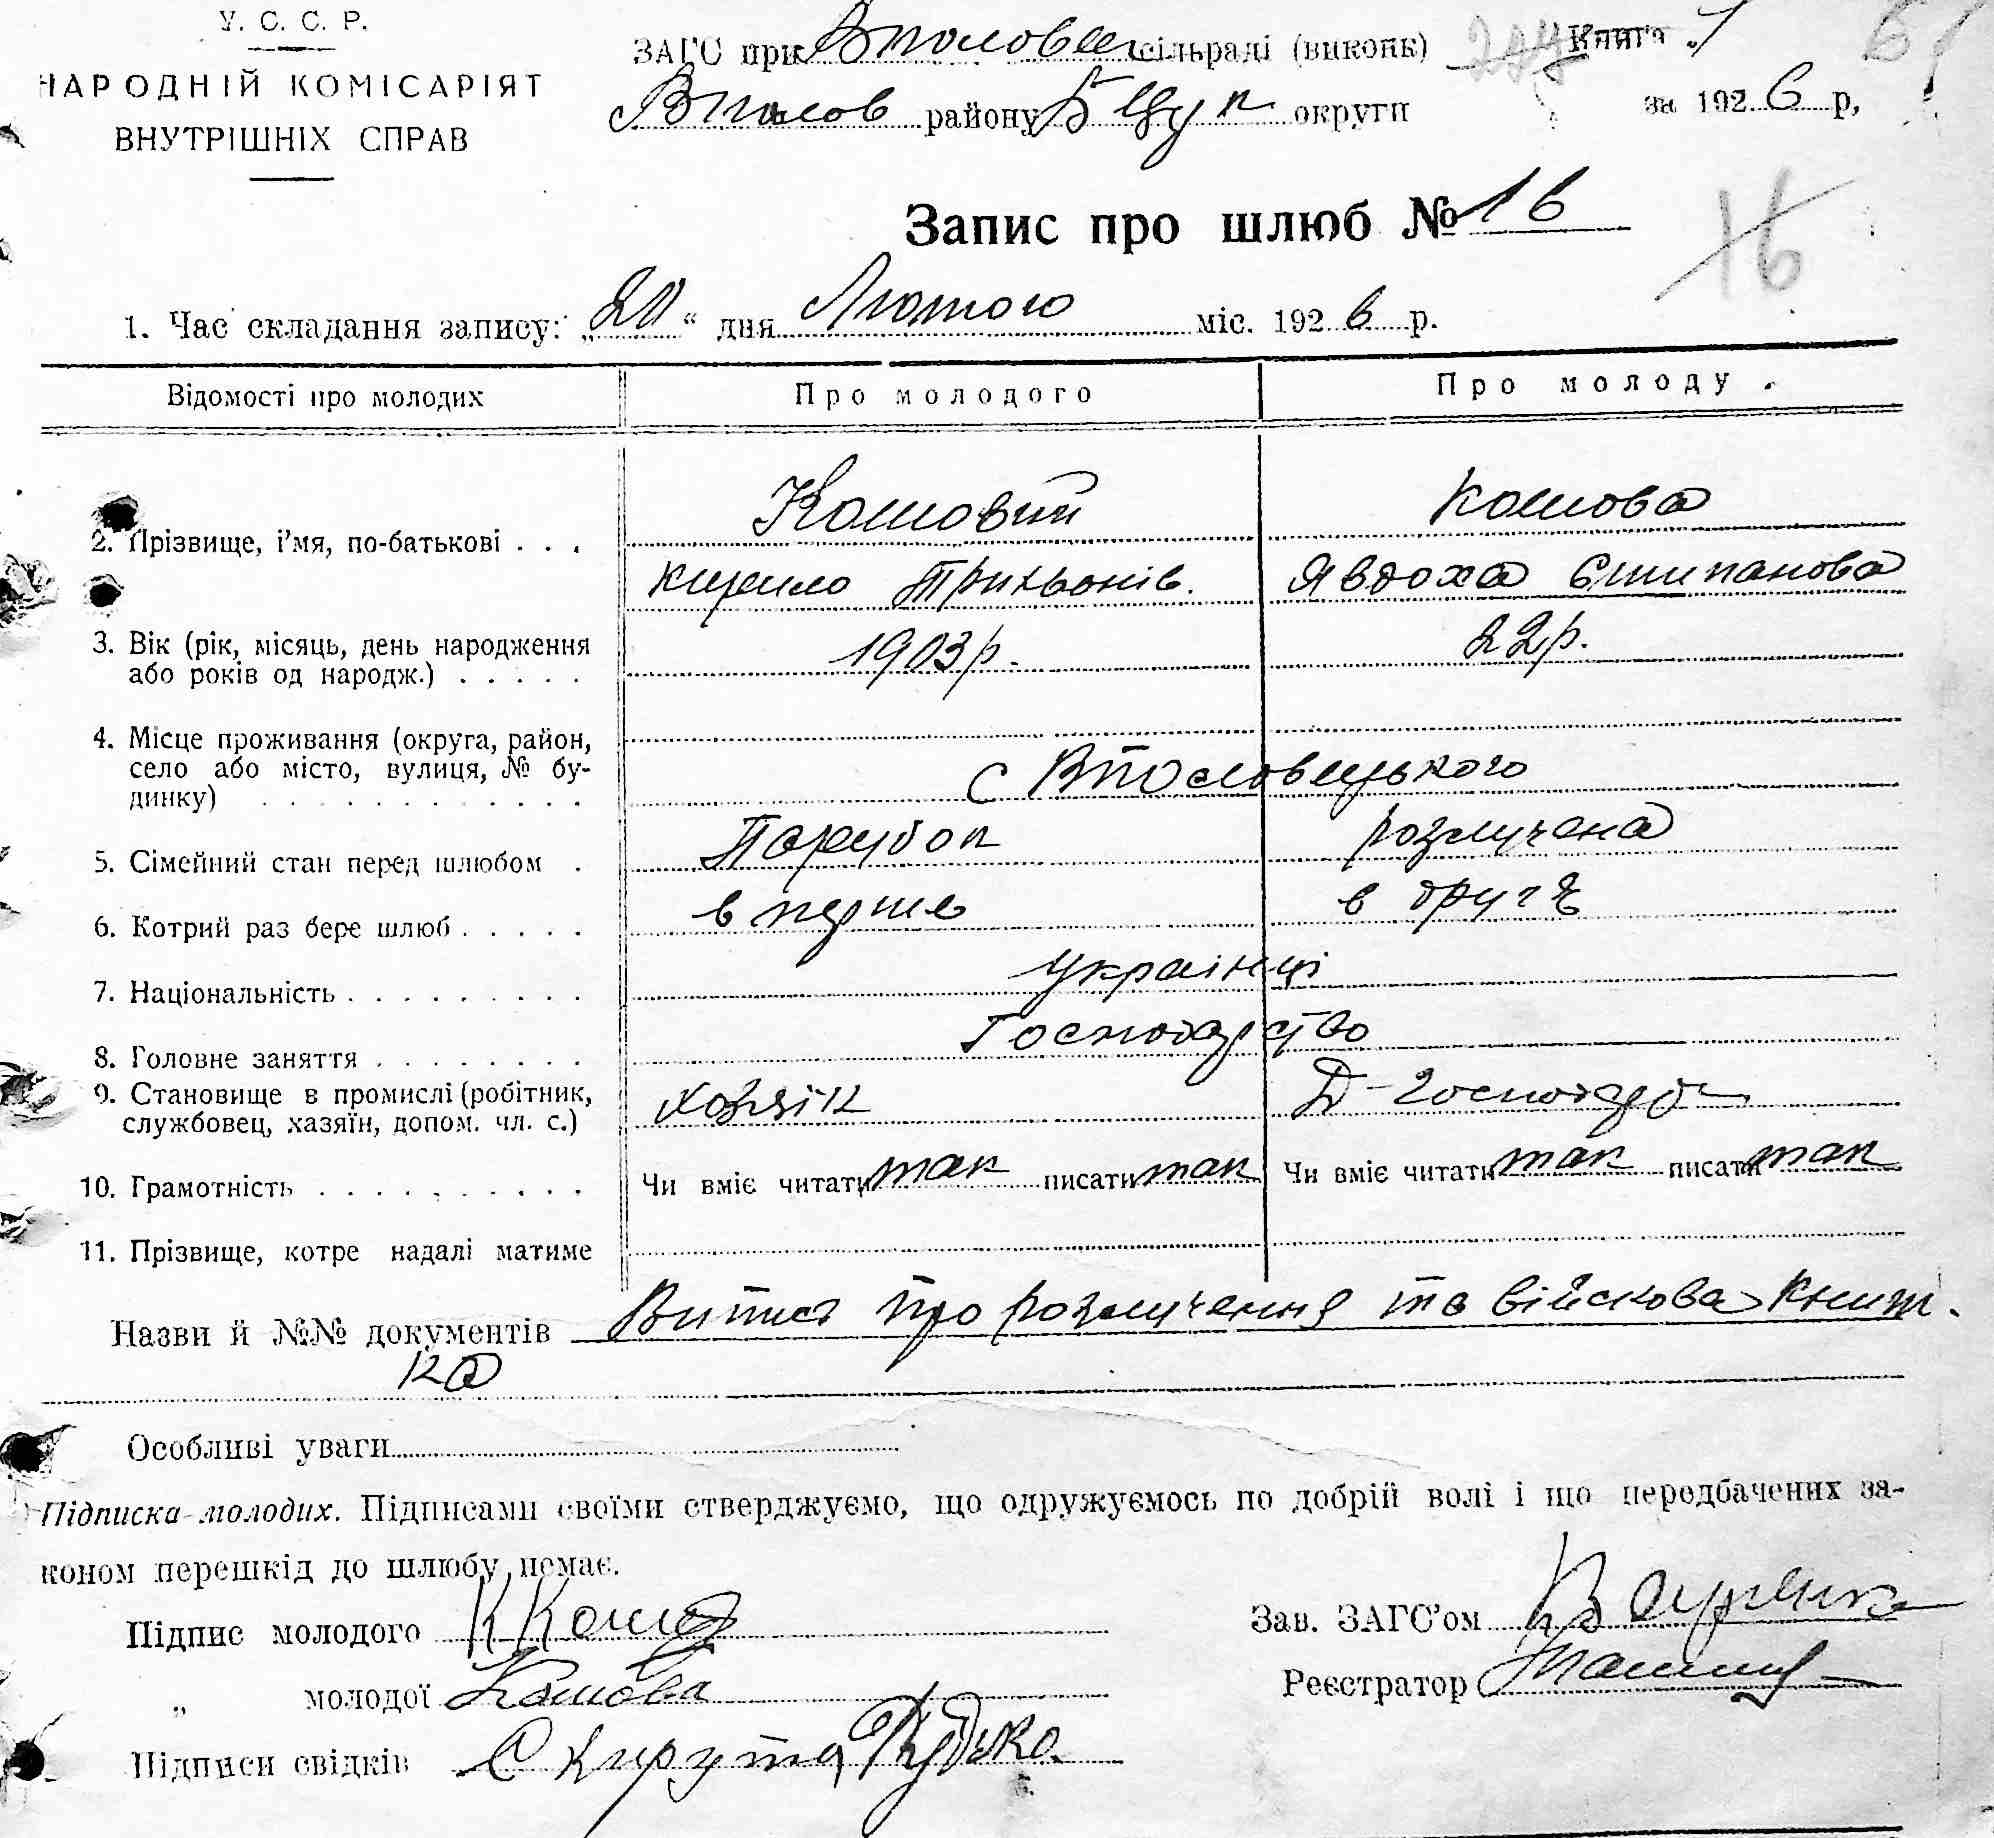 У. С. С. Р.
НАРОДНІЙ КОМІСАРІЯТ
ВНУТРІШНІХ СПРАВ
ЗАГС при сільраді (виконк) Книга 1
району БЦук округи за 1926 р,
Запис про шлюб № 16
16
1. Час складання запису: „20“ дня Лютого міс. 1926 р.
Відомості про молодих Про молодого Про молоду
2. Прізвище, і'мя, по-батькові . . . Кошовий Кошова
Кирило Трихвонів. Явдоха Єтипанова
3. Вік (рік, місяць, день народження 1903 р. 22 р.
або років од народж.) . . . . .
4. Місце проживання (округа, район,
село або місто, вулиця, № бу- с
динку) . . . . . . . . . . . .
5. Сімейний стан перед шлюбом . Парубок розлучена
6. Котрий раз бере шлюб . . . . . в перше в друге
7. Національність . . . . . . . . . українці
8. Головне заняття . . . . . . . . Господарство
9. Становище в промислі (робітник, хазяїн Д-господар
службовец, хазяїн, допом. чл. с.)
10. Грамотність . . . . . . . . . . Чи вміє читати так писати так Чи вміє читати так писати так
11. Прізвище, котре надалі матиме
Назви й №№ документів Витяг про розлучення та військова книж-
ка
Особливі уваги
Підписка молодих. Підписами своїми стверджуємо, що одружуємось по добрій волі і що передбачених за-
коном перешкід до шлюбу немає.
Підпис молодого ККош Зав. ЗАГС'ом
„ молодої Кошова Реєстратор
Підписи свідків Скирута,